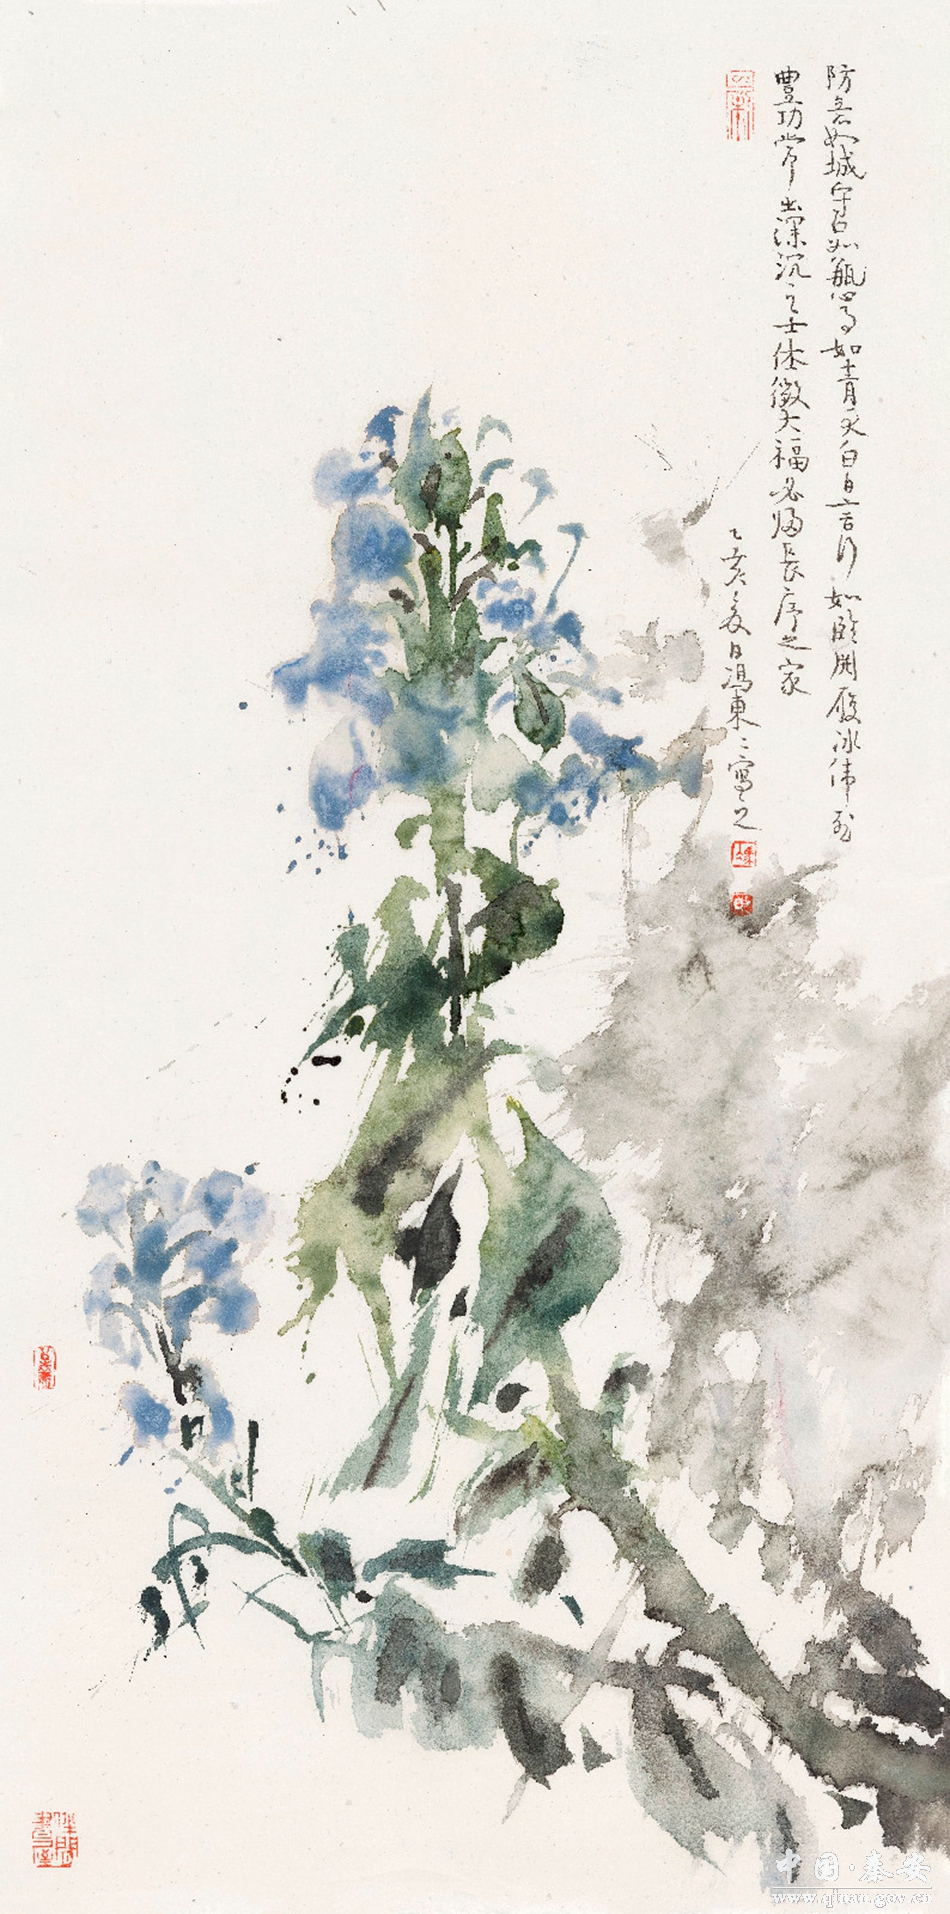 防意如城守口如瓶心事如青天白日言行如临渊履冰伟烈
豐功常出深沉之士休徵大福必归長厚之家
乙亥夏日冯東〻寫之
中国·秦安
www.qinan.gov.cn